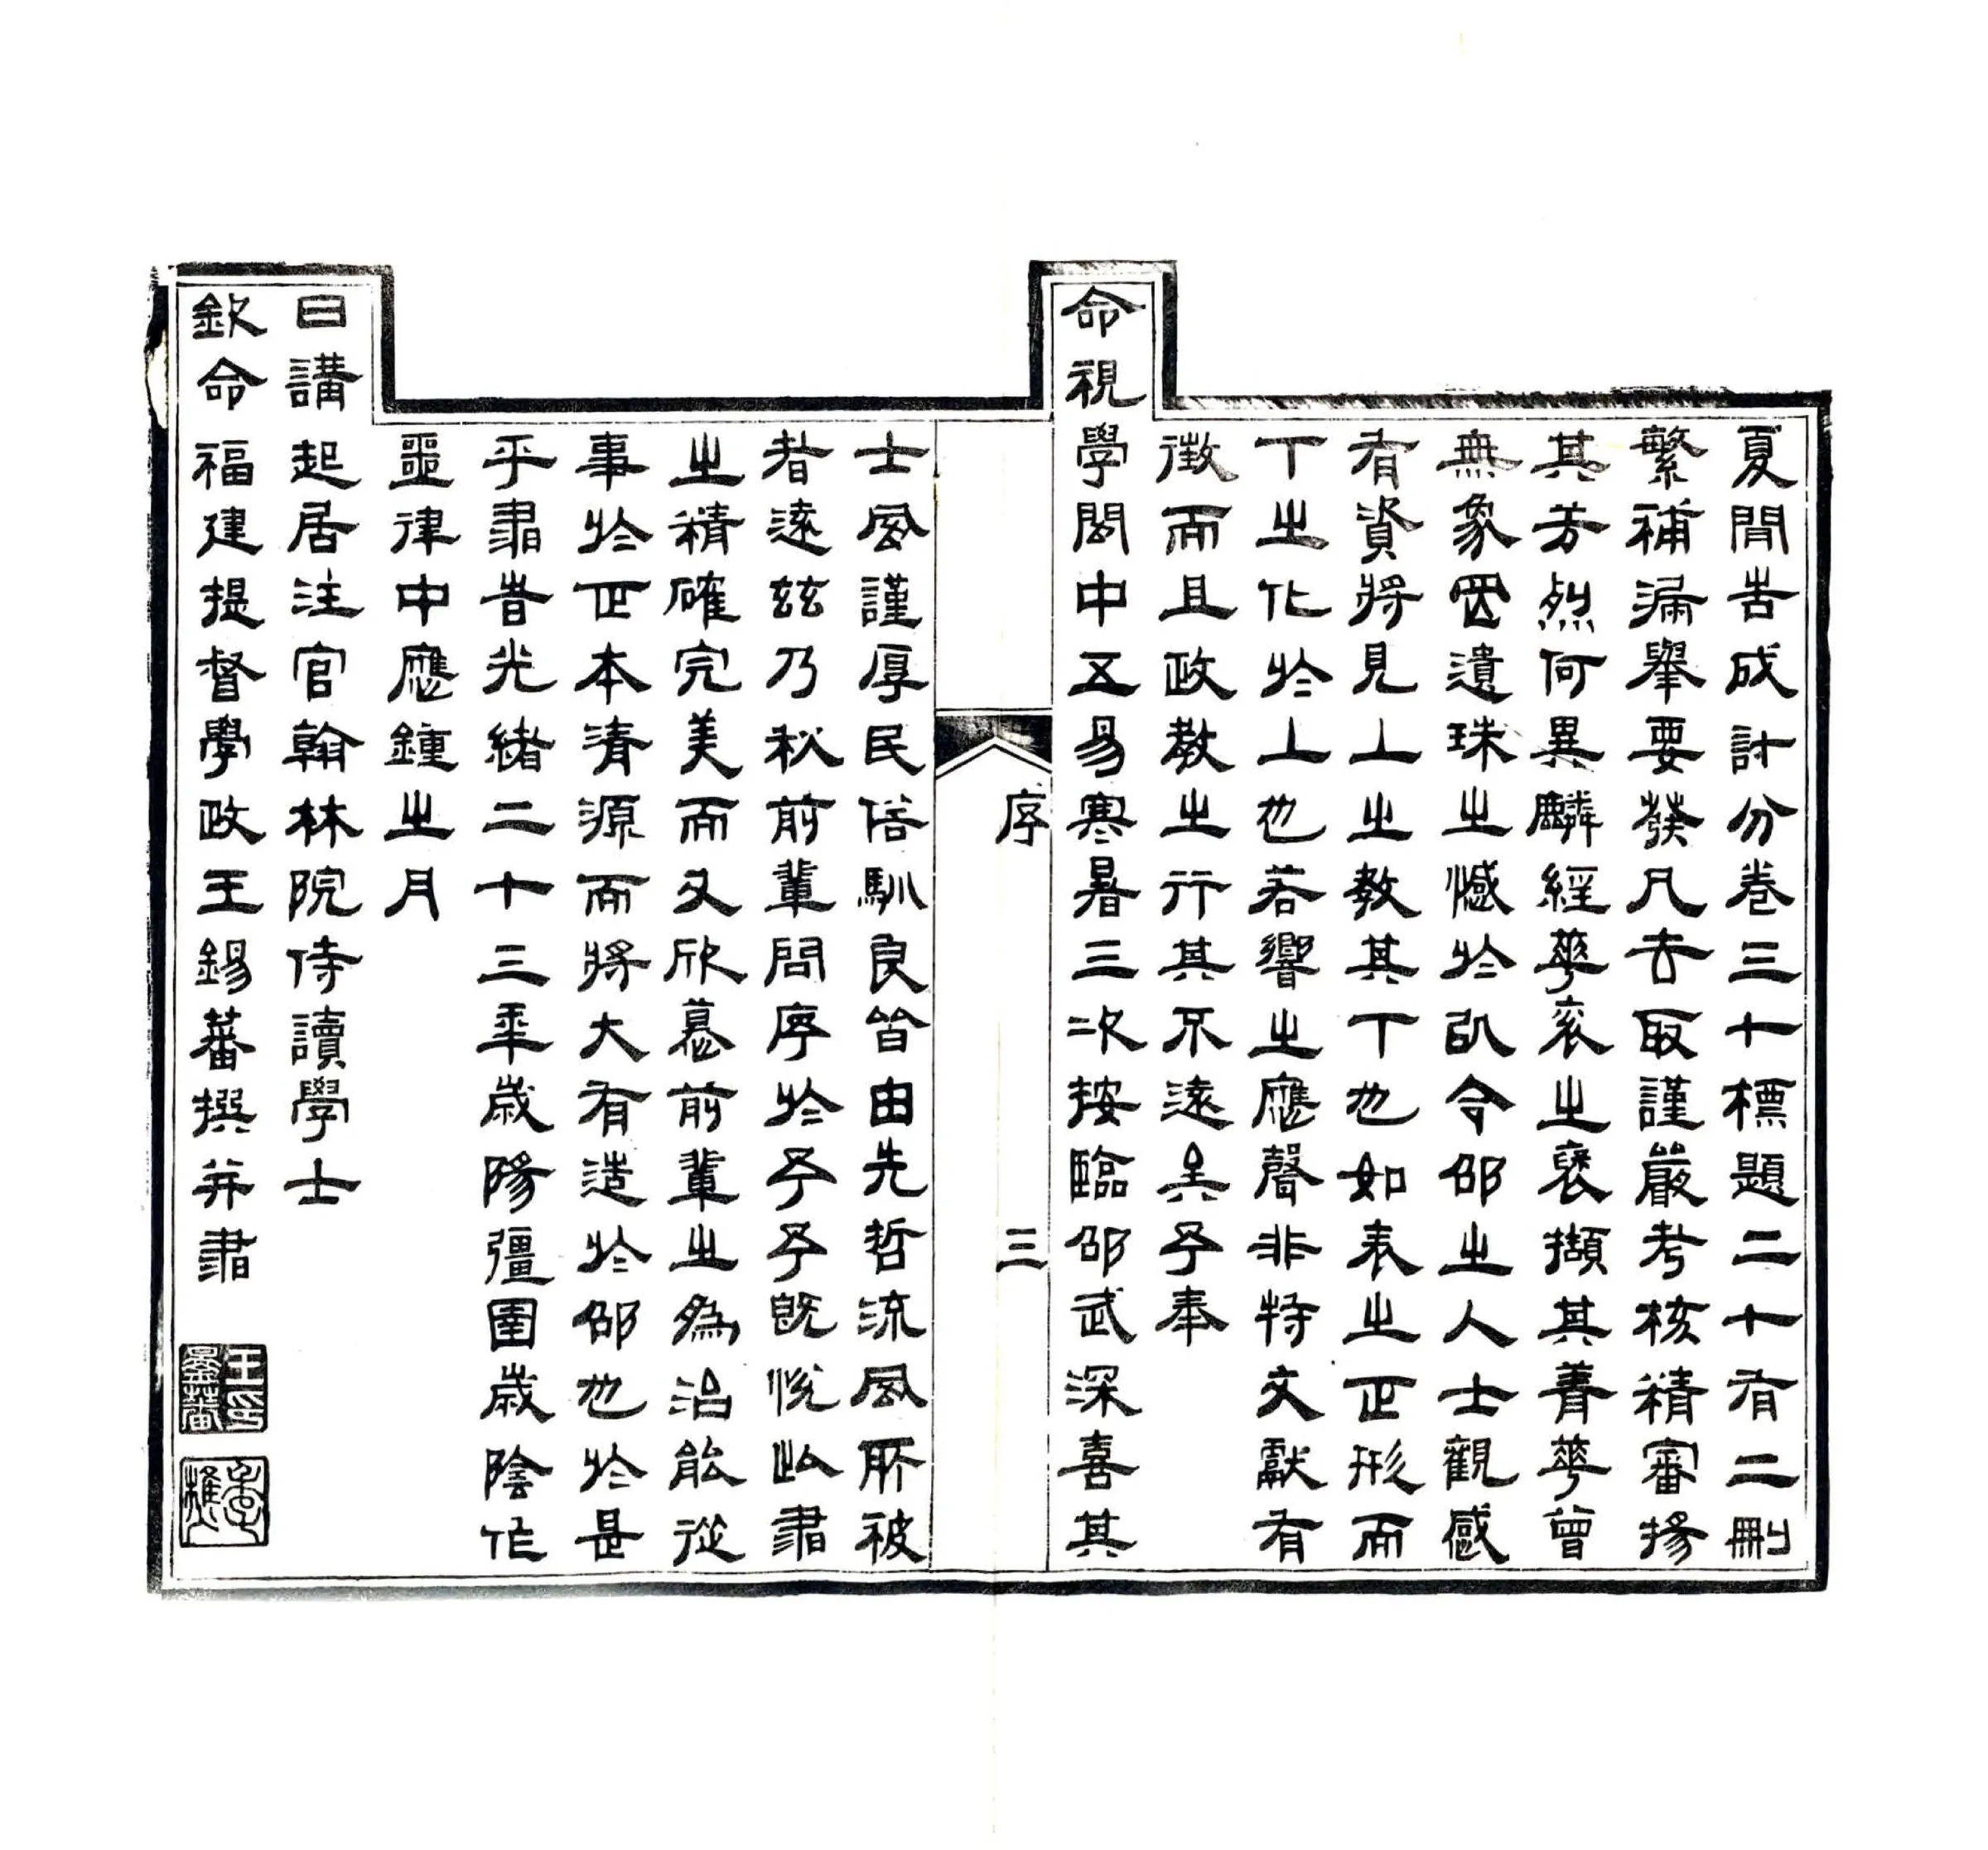 夏間告成計分卷三十標題二十有二刪
繁補漏舉要發凡去取謹嚴考核精審揚
其芳烈何異麟經華袞之褒擷其菁華曾
無象罔遺珠之憾於以令邵之人士觀感
有資將見上之教其下也如表之正形而
下之化於上也若響之應聲非特文獻有
徵而且政教之行其不遠矣予奉
命視學閩中五易寒暑三次按臨邵武深喜其
序 三
士風謹厚民俗馴良皆由先哲流風所被
者遠茲乃秋前輩問序於予予既悅此書
之精確完美而又欣慕前輩之為治能從
事於正本清源而將大有造於邵也於是
乎書旹光緒二十三年歲陽彊圉歲陰作
噩律中應鍾之月
日講起居注官翰林院侍讀學士
欽命福建提督學政王錫蕃撰并書
王印錫蕃
季樵